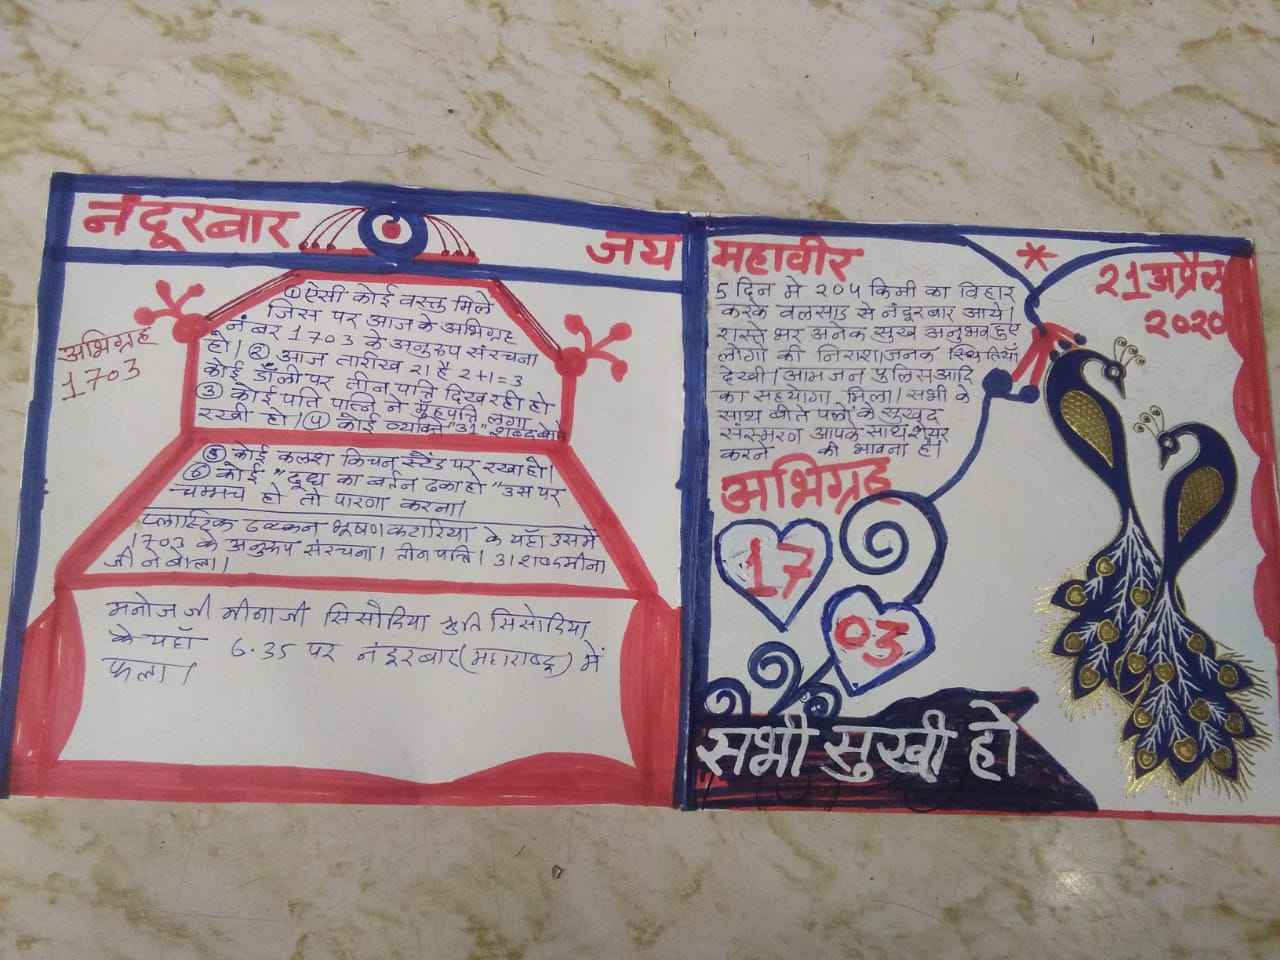 नंदूरबार
जय महावीर
अभिग्रह
1703
① ऐसी कोई वस्तु मिले
जिस पर आज के अभिग्रह
नंबर 1703 के अनुरूप संरचना
हो। ② आज तारीख 21 है 2+1=3
कोई डॉली पर तीन पत्ति दिख रही हो
③ कोई पति पत्नि ने मुहपति लगा
रखी हो। ④ कोई व्यक्ति "31" शब्द बोले
⑤ कोई कलश किचन स्टैंड पर रखा हो।
⑥ कोई "दूध का बर्तन ढका हो" उस पर
चम्मच हो तो पारणा करना।
प्लास्ट्रिक ढक्कन भूषण कटारिया के यहाँ उसमें
1703 के अनुरूप संरचना। तीन पत्ति। 31 शब्द मीना
जी ने बोला।
मनोज जी मीनाजी सिसोदिया श्रुति सिसोदिया
के यहाँ 6.35 पर नंदूरबार (महाराष्ट्र) में
फला।
21 अप्रैल
2020
5 दिन मे 204 किमी का विहार
करके वलसाड से नंदूरबार आये।
रास्ते भर अनेक सुख अनुभव हुए
लोगो की निराशाजनक स्थितियाँ
देखी। आमजन पुलिस आदि
का सहयोग मिला। सभी के
साथ बीते पलो के सुखद
संस्मरण आपके साथ शेयर
करने की भावना है।
अभिग्रह
17
03
सभी सुखी हो